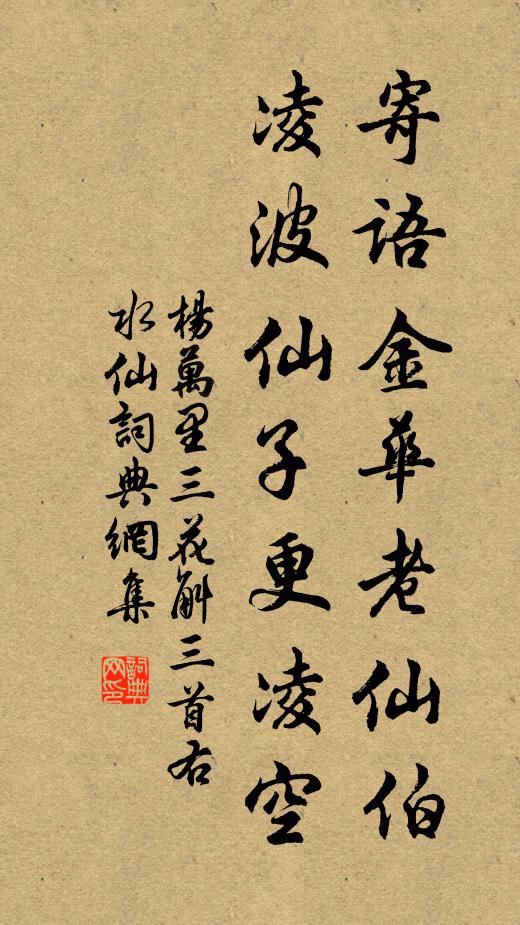 寄語金華老仙伯
凌波仙子更凌空
楊萬里三花斛三首右
水仙詞典網集
詞典网印